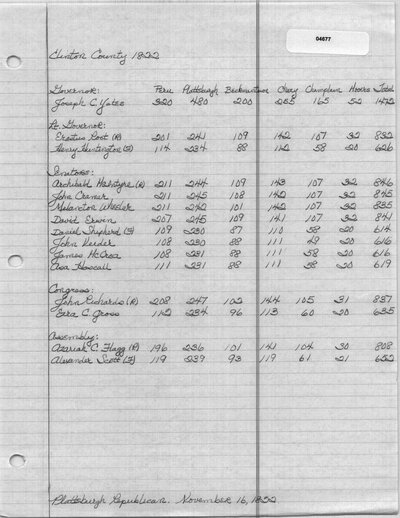 04677
Clinton County 1822
Governor: Peru Plattsburgh Beekmantown Chazy Champlain Mooers Total
Joseph C. Yates 320 480 200 255 165 52 1472
Lt. Governor:
Erastus Root (R) 201 241 109 142 107 32 832
Henry Huntington (F) 114 234 88 112 58 20 626
Senators:
Archibald McIntyre (R) 211 244 109 143 107 32 846
John Cramer 211 245 108 142 107 32 845
Melancton Wheeler 211 242 101 142 107 32 835
David Erwin 207 245 109 141 107 32 841
Daniel Shepherd (F) 109 230 87 110 58 20 614
John Reeder 108 230 88 111 49 20 616
James McCrea 108 231 88 111 58 20 616
Asa Hascall 111 231 88 111 58 20 619
Congress:
John Richards (R) 208 247 102 144 105 31 837
Ezra C. Gross 112 234 96 113 60 20 635
Assembly:
Azariah C. Flagg (R) 196 236 101 141 104 30 808
Alexander Scott (F) 119 239 93 119 61 21 652
Plattsburgh Republican. November 16, 1822